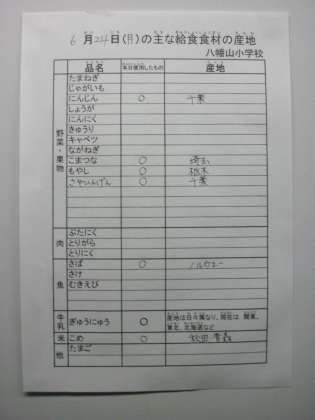 6月24日(月)の主な給食食材の産地
八幡山小学校
品名 本日使用したもの 産地
野菜・果物
たまねぎ
じゃがいも
にんじん ○ 千葉
しょうが
にんにく
きゅうり
キャベツ
ながねぎ
こまつな ○ 埼玉
もやし ○ 栃木
さやいんげん ○ 千葉
肉
ぶたにく
とりがら
とりにく
魚
さば ○ ノルウェー
さけ
むきえび
牛乳 ぎゅうにゅう ○ 産地は日々異なり、現在は 関東、
東北、北海道など
米 こめ ○ 秋田 青森
他 たまご